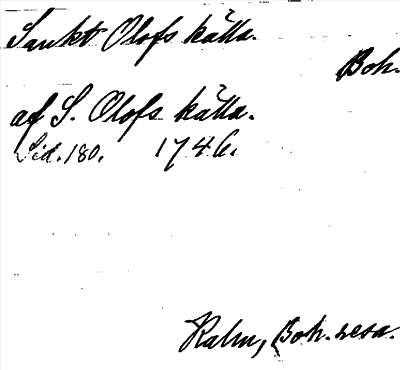 Sankt Olofs källa.
Boh.
af S. Olofs källa.
Sid. 180. 1746.
Kalm, Boh. resa.